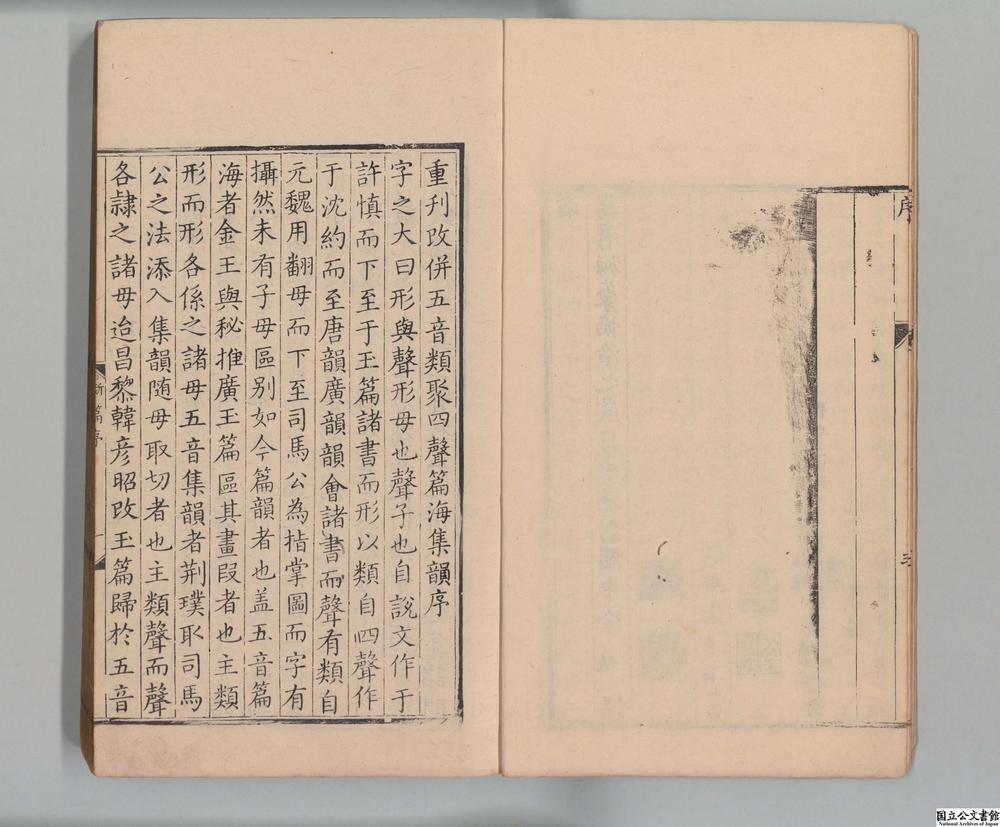 序
三
重刋改併五音類聚四聲篇海集韻序
字之大曰形與聲形母也聲子也自說文作于
許慎而下至于玉篇諸書而形以類自四聲作
于沈約而至唐韻廣韻韻會諸書而聲有類自
元魏用翻母而下至司馬公為指掌圖而字有
攝然未有子母區別如今篇韻者也盖五音篇
海者金王與秘推廣玉篇區其畫段者也主類
形而形各係之諸母五音集韻者荆璞取司馬
公之法添入集韻随母取切者也主類聲而聲
各隷之諸母迨昌黎韓彦昭改玉篇歸於五音
新篇序
一
国立公文書館
National Archives of Japan